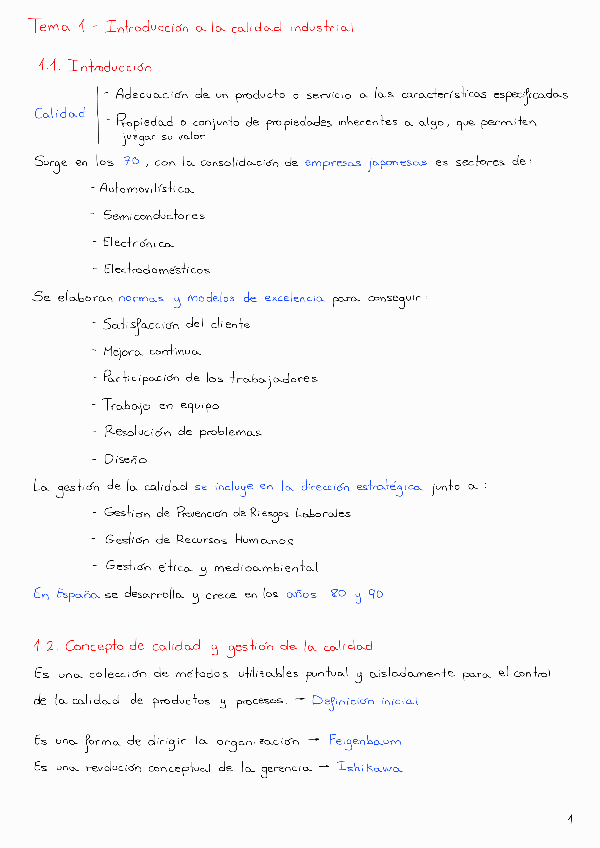 Tema 1 - Introducción a la calidad industrial
1.1. Introducción
- Adecuación de un producto o servicio a las características especificadas
Calidad
- Propiedad o conjunto de propiedades inherentes a algo, que permiten
juzgar su valor
Surge en los 70, con la consolidación de empresas japonesas es sectores de:
- Automovilística
- Semiconductores
- Electrónica
- Electrodomésticos
Se elaboran normas y modelos de excelencia para conseguir:
- Satisfacción del cliente
- Mejora continua
- Participación de los trabajadores
- Trabajo en equipo
- Resolución de problemas
- Diseño
La gestión de la calidad se incluye en la dirección estratégica junto a:
- Gestión de Prevención de Riesgos Laborales
- Gestión de Recursos Humanos
- Gestión ética y medioambiental
En España se desarrolla y crece en los años 80 y 90
1.2. Concepto de calidad y gestión de la calidad
Es una colección de métodos utilizables puntual y aisladamente para el control
de la calidad de productos y procesos. → Definición inicial
Es una forma de dirigir la organización → Feigenbaum
Es una revolución conceptual de la gerencia → Ishikawa
1